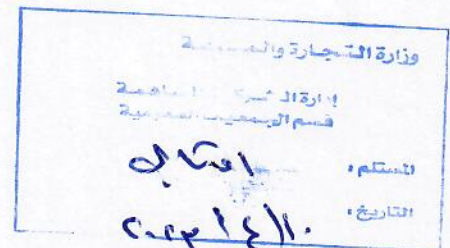 وزارة التجارة والصناعة
إدارة الشركات المساهمة
قسم الجمعيات العمومية
المستلم :
التاريخ : ١٠/٤/٢٠٢٣